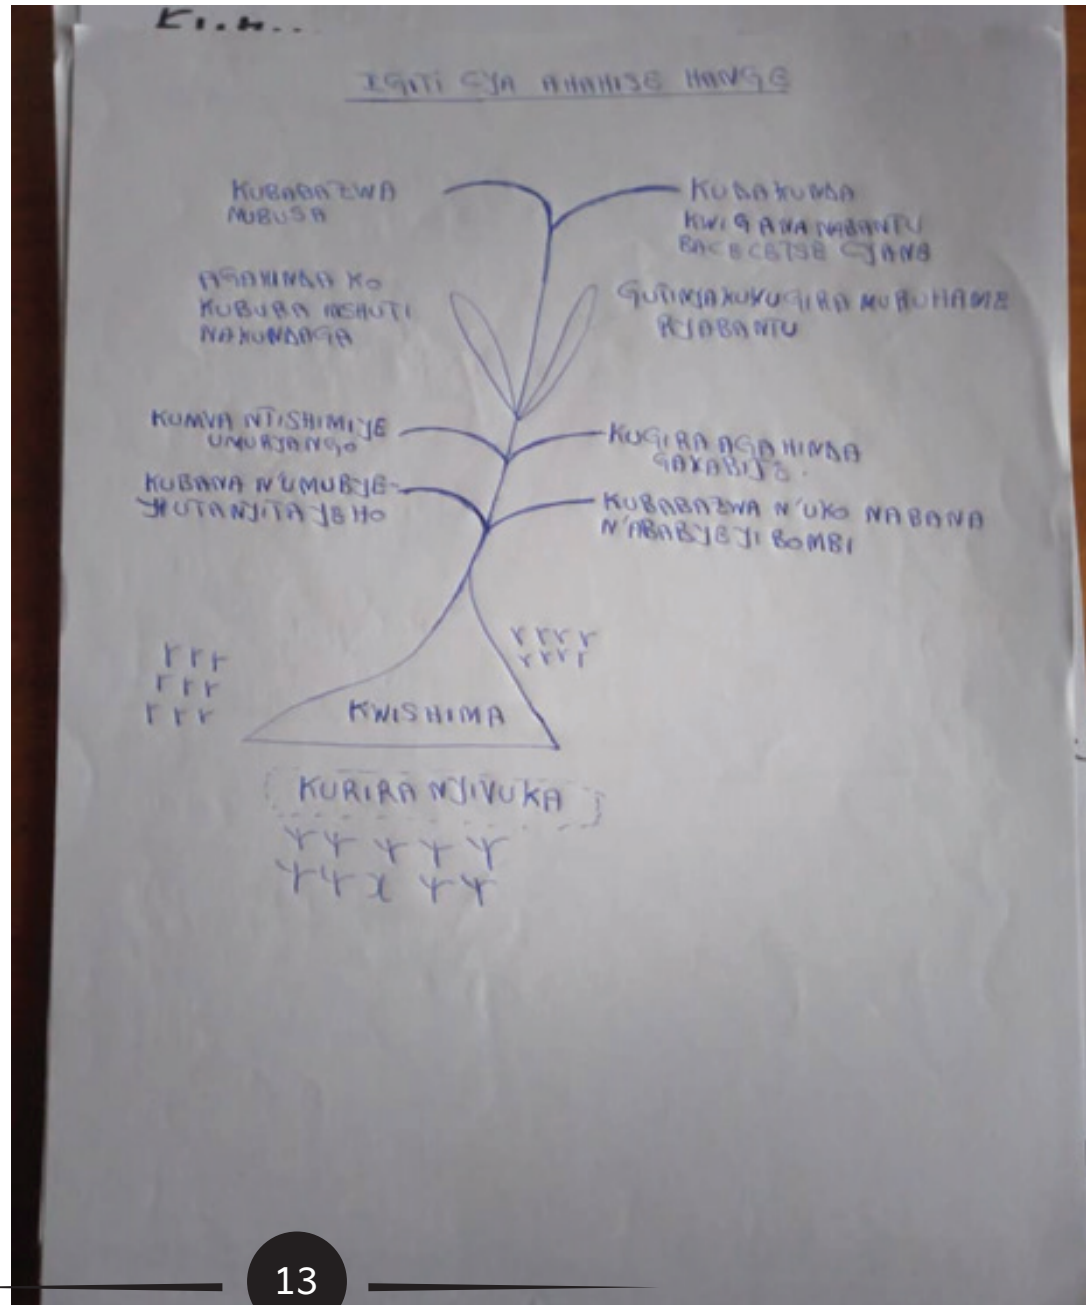 IGITI CYA AHAHISE HANGE
KUBABAZWA
NUBUSA
KUDAKUNDA
KWIGANA NABANTU
BACECETSE CYANE
AGAHINDA KO
KUBURA INSHUTI
NAKUNDAGA
GUTINYA KUKUGIRA MURUHAME
RYABANTU
KUMVA NTISHIMIYE
UMURYANGO
KUGIRA AGAHINDA
GAKABIJE.
KUBANA N'UMUBYE-
YI UTANYITAYEHO
KUBABAZWA N'UKO NABANA
N'ABABYEYI BOMBI
KWISHIMA
KURIRA NJIVUKA
13